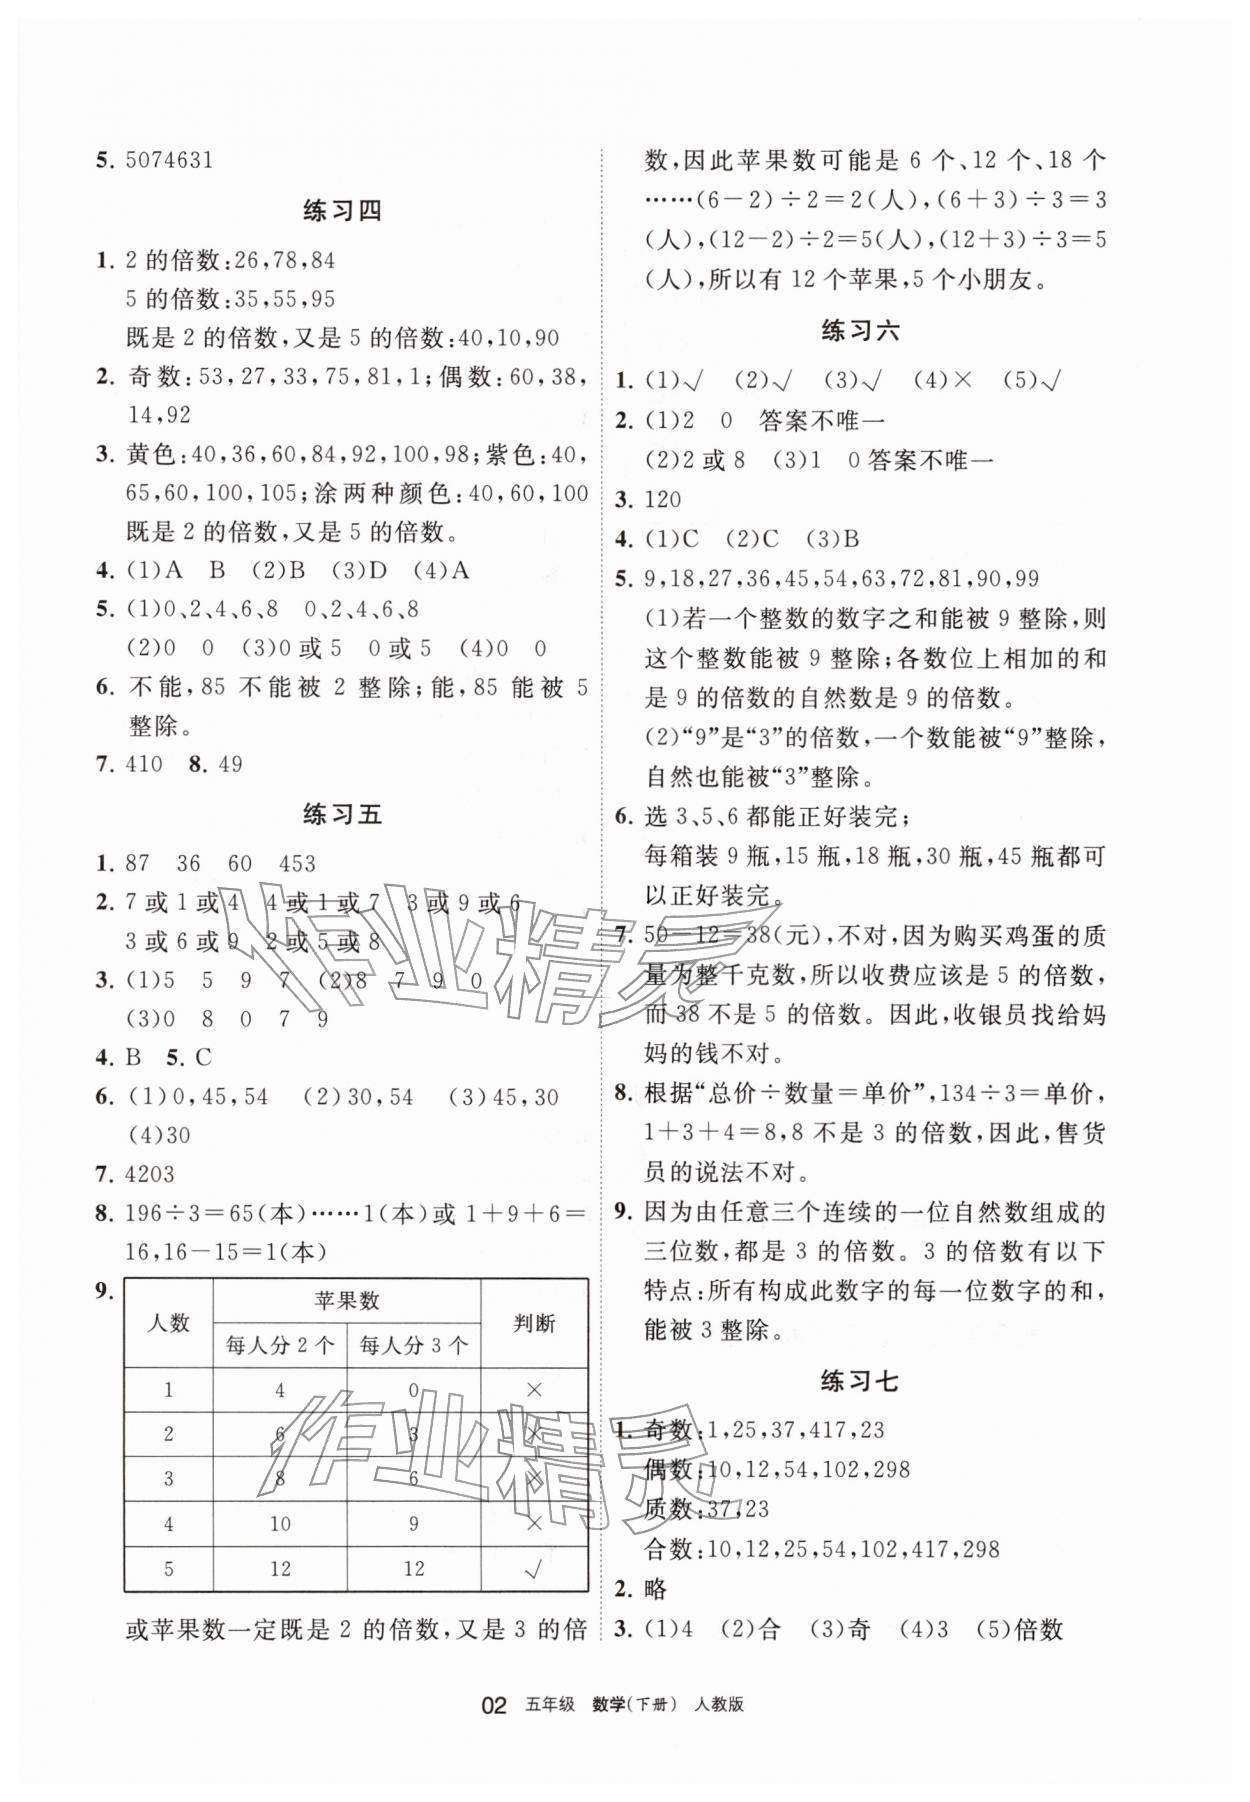 5. 5074631
练习四
1. 2 的倍数:26,78,84
5 的倍数:35,55,95
既是 2 的倍数,又是 5 的倍数:40,10,90
2. 奇数:53,27,33,75,81,1;偶数:60,38,
14,92
3. 黄色:40,36,60,84,92,100,98;紫色:40,
65,60,100,105;涂两种颜色:40,60,100
既是 2 的倍数,又是 5 的倍数。
4. (1)A B (2)B (3)D (4)A
5. (1)0、2、4、6、8 0、2、4、6、8
(2)0 0 (3)0 或 5 0 或 5 (4)0 0
6. 不能,85 不能被 2 整除;能,85 能被 5
整除。
7. 410 8. 49
练习五
1. 87 36 60 453
2. 7 或 1 或 4 4 或 1 或 7 3 或 9 或 6
3 或 6 或 9 2 或 5 或 8
3. (1)5 5 9 7 (2)8 7 9 0
(3)0 8 0 7 9
4. B 5. C
6. (1)0,45,54 (2)30,54 (3)45,30
(4)30
7. 4203
8. 196÷3=65(本)……1(本)或 1+9+6=
16,16-15=1(本)
9.
人数 苹果数 判断
每人分 2 个 每人分 3 个
1 4 0 ×
2 6 3 ×
3 8 6 ×
4 10 9 ×
5 12 12 √
或苹果数一定既是 2 的倍数,又是 3 的倍
数,因此苹果数可能是 6 个、12 个、18 个
……(6-2)÷2=2(人),(6+3)÷3=3
(人),(12-2)÷2=5(人),(12+3)÷3=5
(人),所以有 12 个苹果,5 个小朋友。
练习六
1. (1)√ (2)√ (3)√ (4)× (5)√
2. (1)2 0 答案不唯一
(2)2 或 8 (3)1 0 答案不唯一
3. 120
4. (1)C (2)C (3)B
5. 9,18,27,36,45,54,63,72,81,90,99
(1)若一个整数的数字之和能被 9 整除,则
这个整数能被 9 整除;各数位上相加的和
是 9 的倍数的自然数是 9 的倍数。
(2)“9”是“3”的倍数,一个数能被“9”整除,
自然也能被“3”整除。
6. 选 3、5、6 都能正好装完;
每箱装 9 瓶,15 瓶,18 瓶,30 瓶,45 瓶都可
以正好装完。
7. 50-12=38(元),不对,因为购买鸡蛋的质
量为整千克数,所以收费应该是 5 的倍数,
而 38 不是 5 的倍数。因此,收银员找给妈
妈的钱不对。
8. 根据“总价÷数量=单价”,134÷3=单价,
1+3+4=8,8 不是 3 的倍数,因此,售货
员的说法不对。
9. 因为由任意三个连续的一位自然数组成的
三位数,都是 3 的倍数。3 的倍数有以下
特点:所有构成此数字的每一位数字的和,
能被 3 整除。
练习七
1. 奇数:1,25,37,417,23
偶数:10,12,54,102,298
质数:37,23
合数:10,12,25,54,102,417,298
2. 略
3. (1)4 (2)合 (3)奇 (4)3 (5)倍数
02 五年级 数学(下册) 人教版
作业精灵
作业精灵